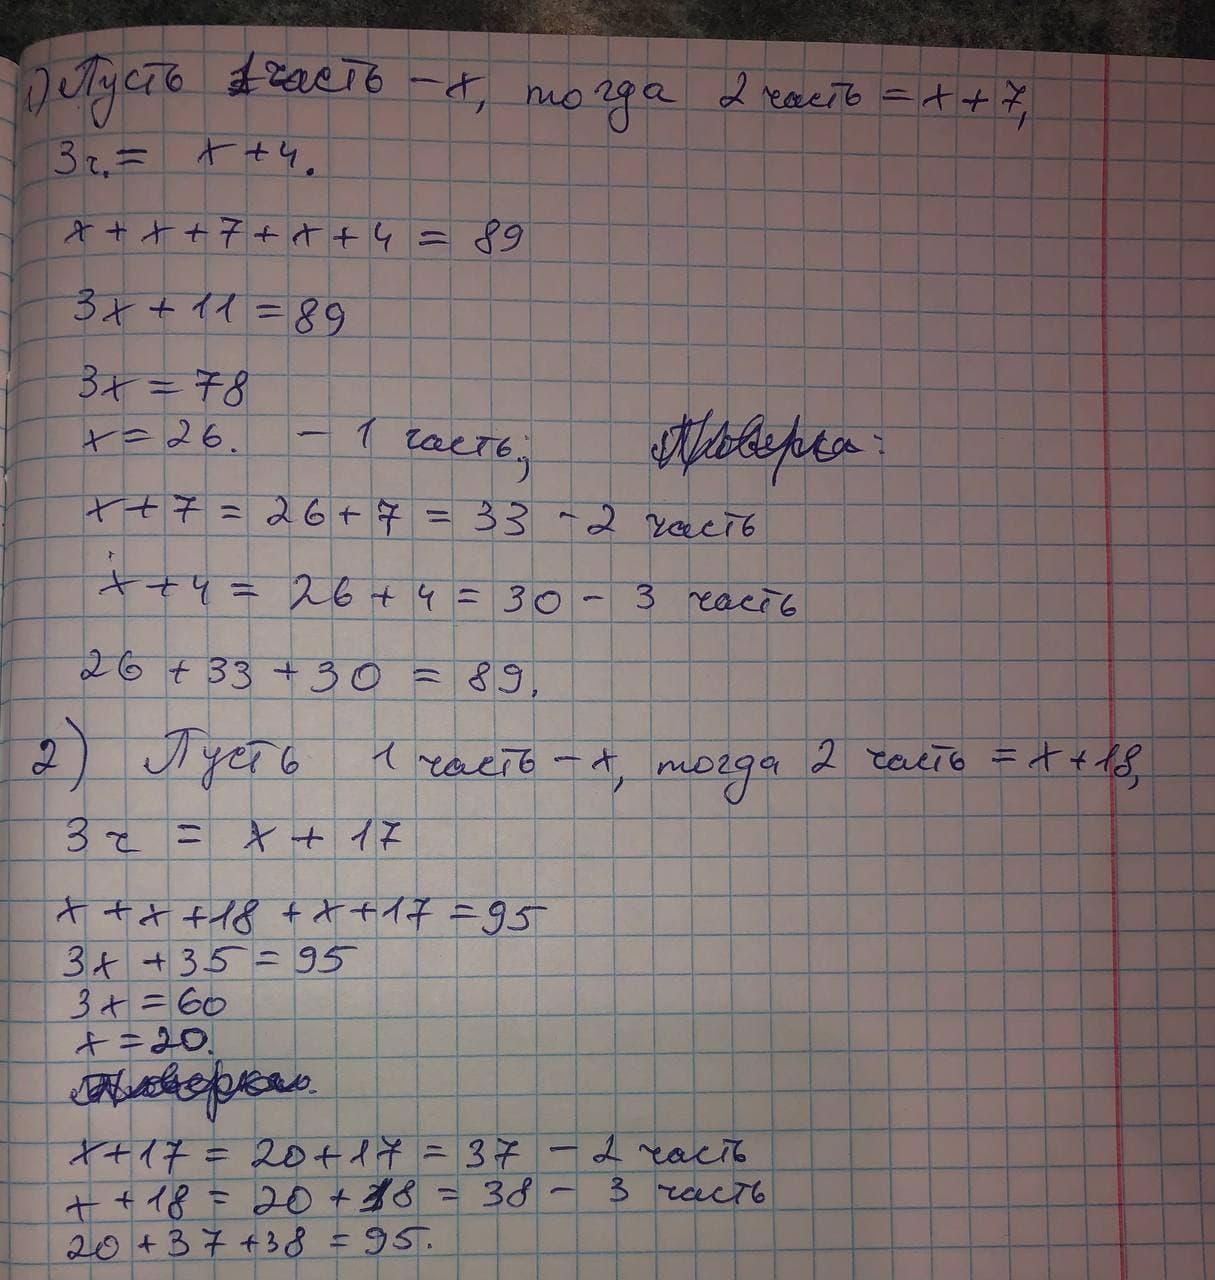 1) Пусть 1 часть - x, тогда 2 часть = x + 7,
3ч. = x + 4.
x + x + 7 + x + 4 = 89
3x + 11 = 89
3x = 78
x = 26. - 1 часть; Проверка:
x + 7 = 26 + 7 = 33 - 2 часть
x + 4 = 26 + 4 = 30 - 3 часть
26 + 33 + 30 = 89.
2) Пусть 1 часть - x, тогда 2 часть = x + 18,
3 ч = x + 17
x + x + 18 + x + 17 = 95
3x + 35 = 95
3x = 60
x = 20.
x + 17 = 20 + 17 = 37 - 2 часть
x + 18 = 20 + 18 = 38 - 3 часть
20 + 37 + 38 = 95.